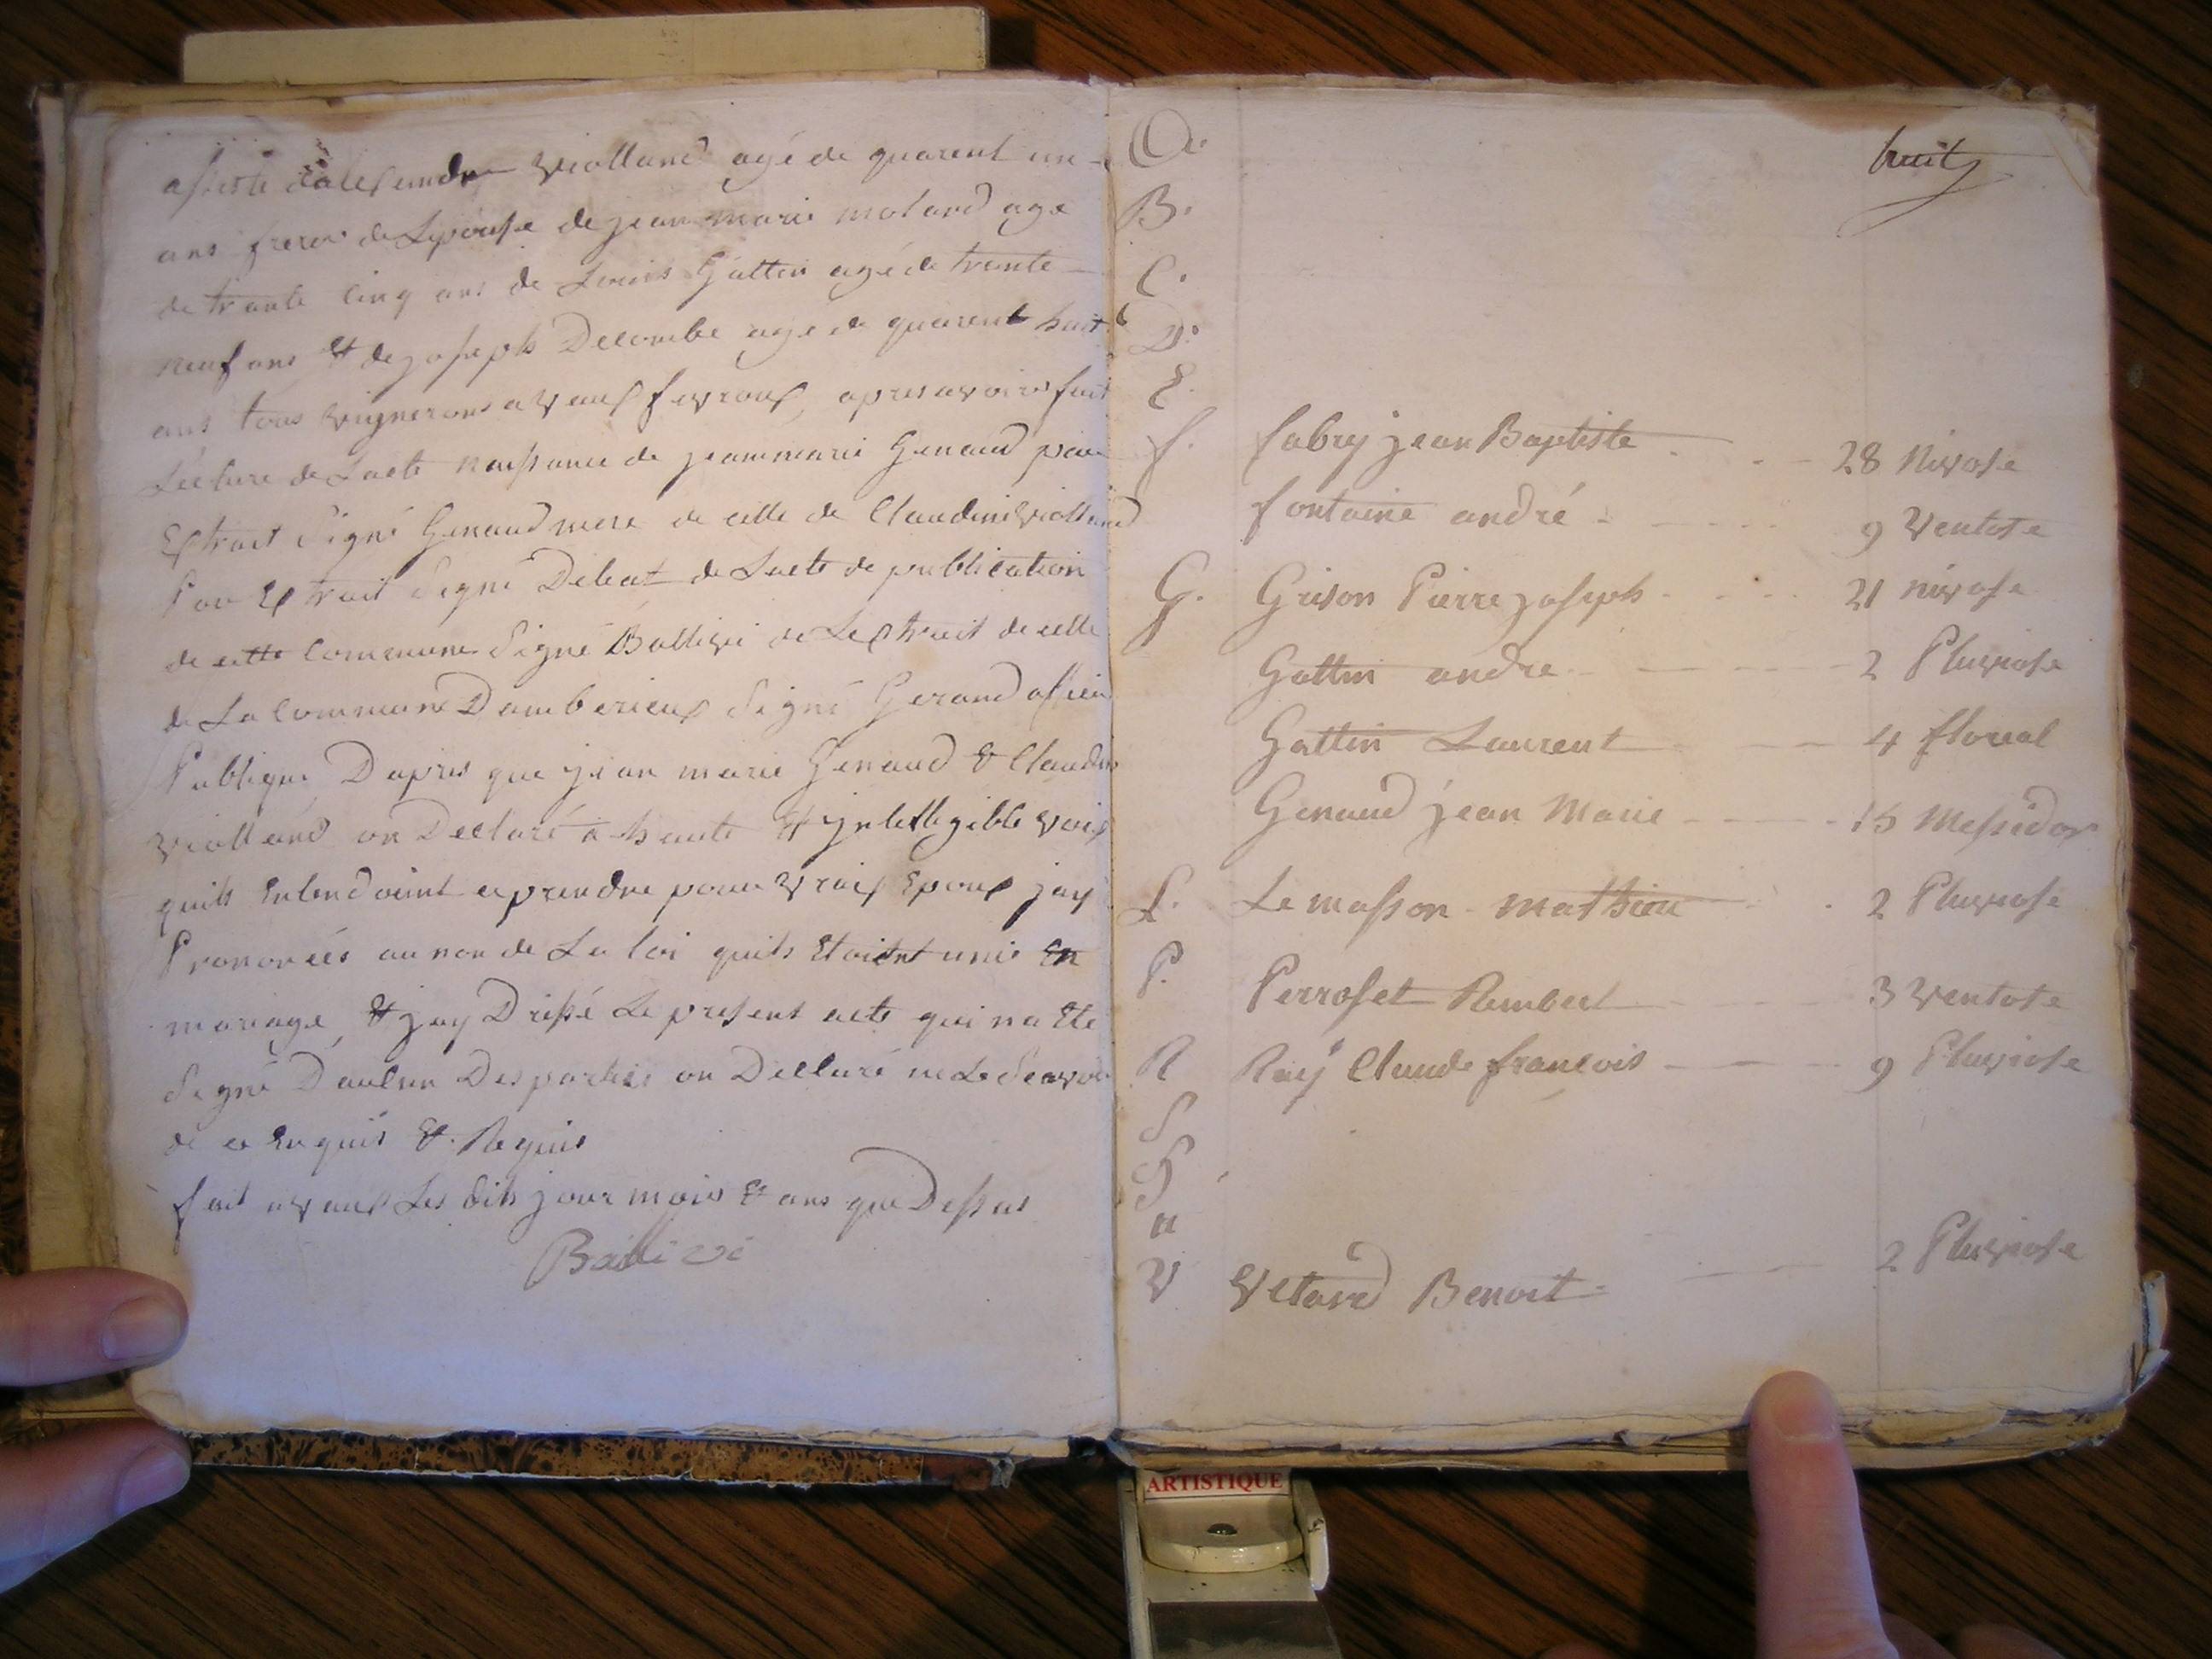 assisté dalexandre Violland agé de quarent un
ans frere de Lepouse de jean marie molard age
de trante cinq ans de Louis Gattin agé de trente
neuf ans & de joseph Decombe age de quarent huit
ans tous vignerons a vaux fevroux, apres avoire fait
Lecture de Lacte naissance de jean marie Genaud par
Extrait Signé Genaud mere de celle de Claudine Violland
Par Extrait Signé Debeat de Lacte de publication
de cette Commune Signé Ballivi de Lextrait de celle
de La Commune Damberieux Signé Gerand officie
Publique Dapres que jean marie Genaud & Claudine
Violland on Declaré a haute & jntellegible voix
quils Entendoint ce prendre pour vraix Epoux jay
Prononcés au nom de La loi quils Etoient unis En
mariage, & jay Dressé Le present acte qui na Ete
Signé Daucun Des parties on Declaré ne Le Scavoir
de ce Enquis & Requis
fait a vaux Les dits jour mois & ans que Dessus
Balivi
huit
A.
B.
C.
D.
E.
f. fabry jean Baptiste 28 Nivose
fontaine andré 9 Ventose
G. Grison Pierre joseph 21 nivose
Gattin andre 2 Pluviose
Gattin Laurent 4 floreal
Genaud jean Marie 15 Messidor
L. Le masson mathieu 2 Pluviose
P. Perroset Rambert 3 Ventose
R Ray Claude francois 9 Pluviose
S
T
u
V Vetard Benoit 2 Pluviose
ARTISTIQUE